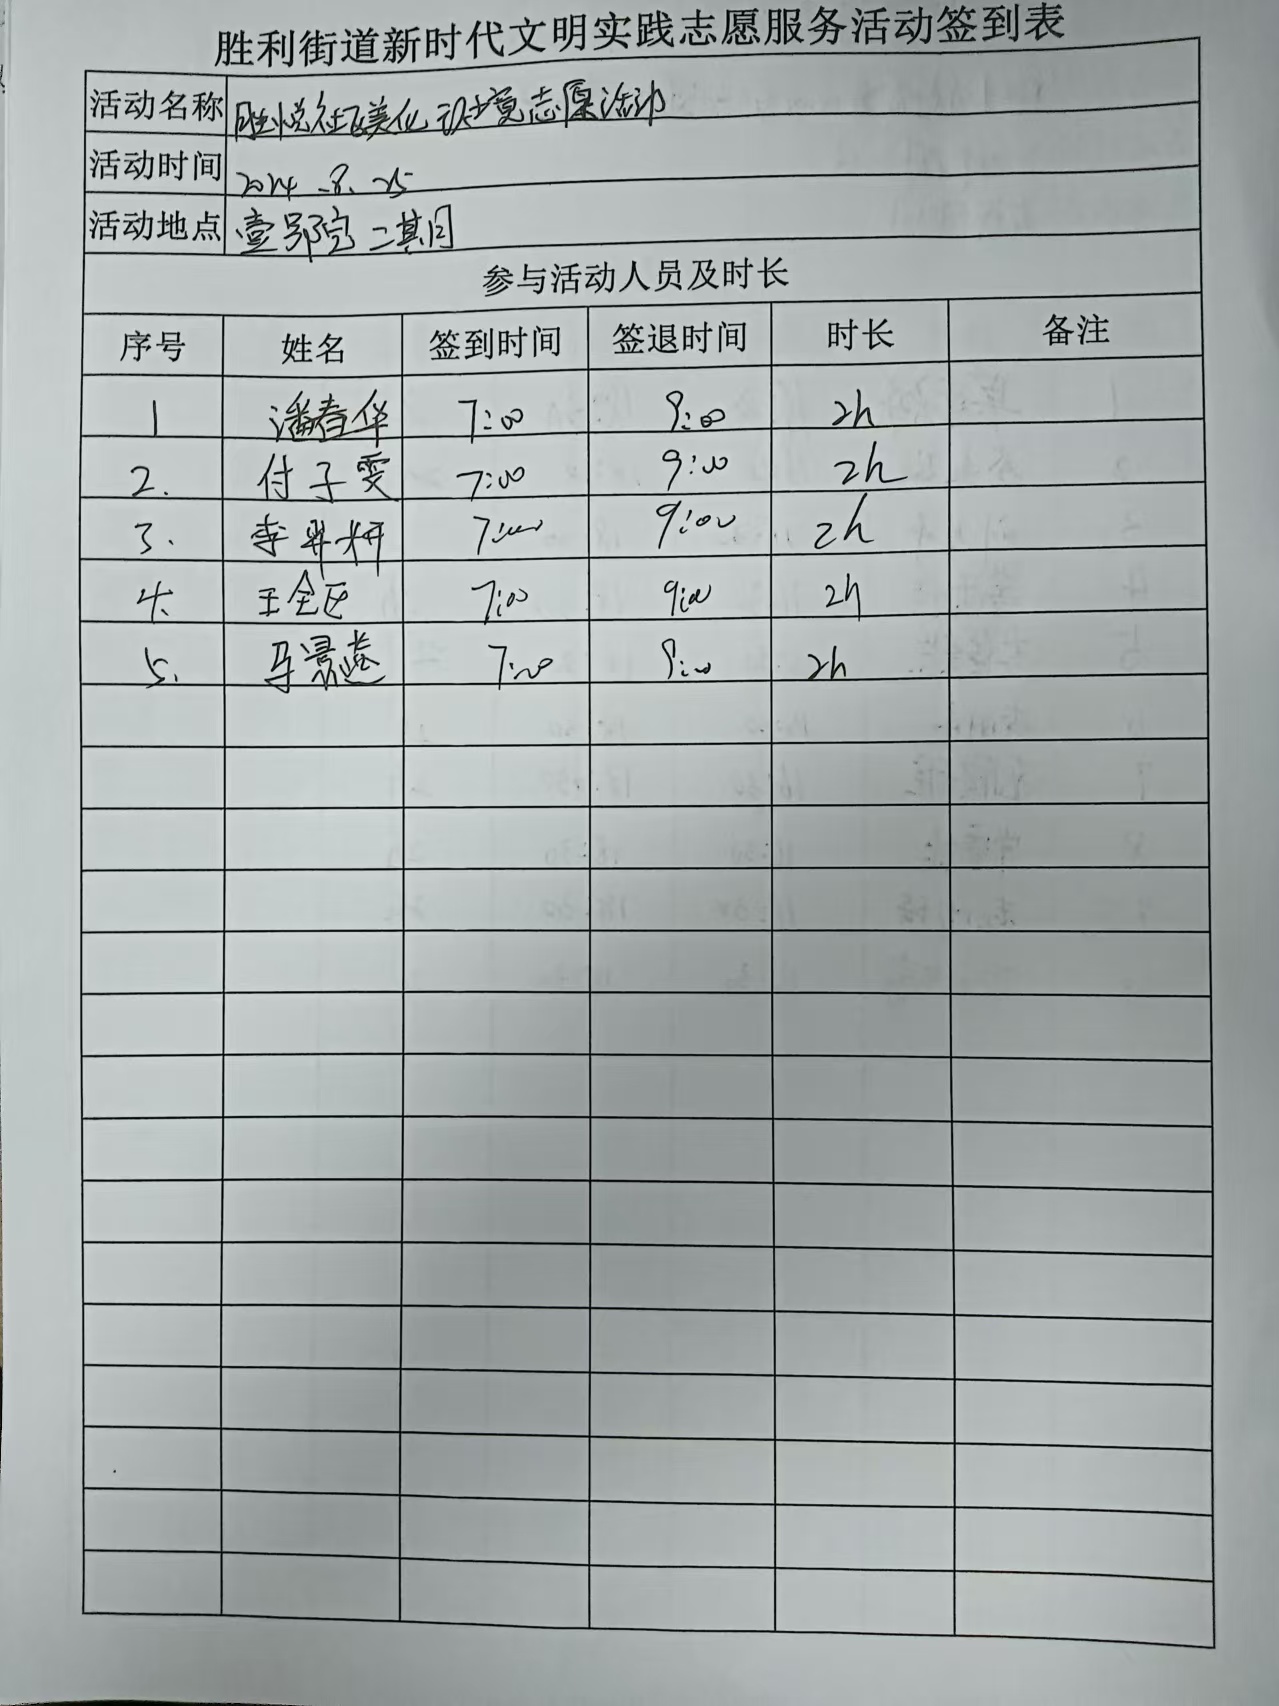 胜利街道新时代文明实践志愿服务活动签到表
活动名称 胜悦社区美化环境志愿活动
活动时间 2024.8.25
活动地点 壹号院二期
参与活动人员及时长
序号 姓名 签到时间 签退时间 时长 备注
1 潘春华 7:00 9:00 2h
2. 付子雯 7:00 9:00 2h
3. 李昇妍 7:00 9:00 2h
4. 王全 7:00 9:00 2h
5. 马景 7:00 9:00 2h